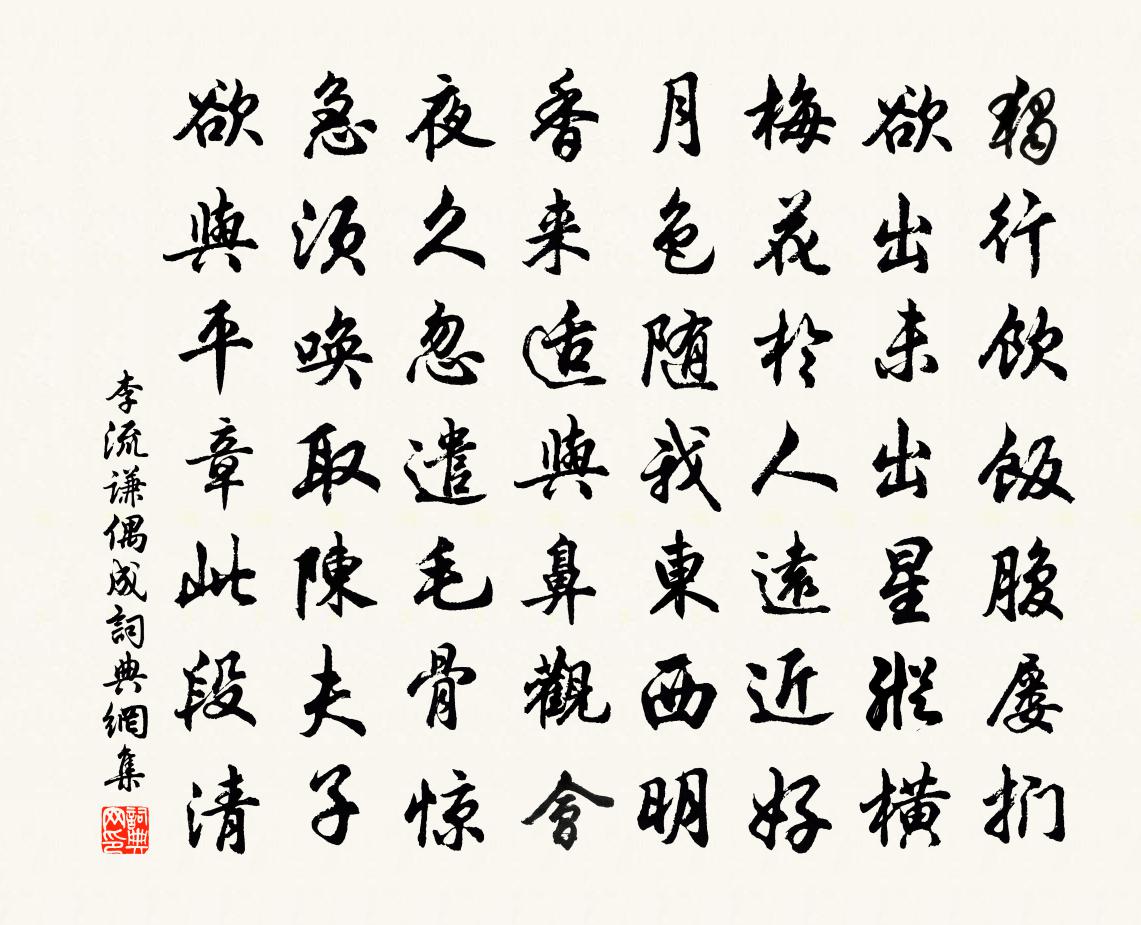 獨行飲飯腹屡捫
欲出未出星縱横
梅花於人遠近好
月色随我東西明
香来适與鼻觀會
夜久忽遣毛骨惊
急须唤取陳夫子
欲與平章此段清
李流谦偶成詞典網集
詞典网印